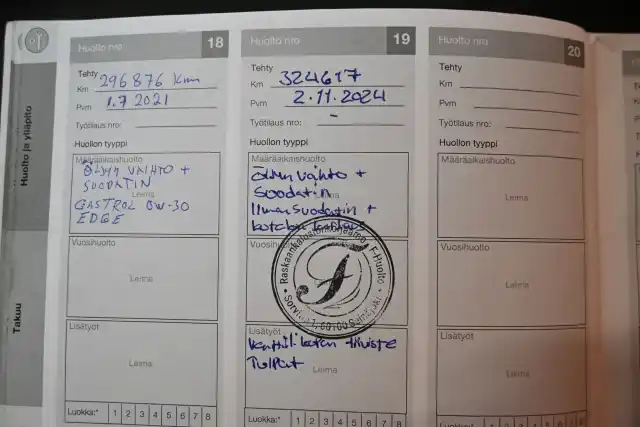 Huolto ja ylläpito
Takuu
Huolto nro 18
Tehty
Km 296876 Km
Pvm 1.7 2021
Työtilaus nro:
Huollon tyyppi
Määräaikaishuolto
ÖLJYN VAIHTO +
SUODATIN
Leima
CASTROL 0W-30
EDGE
Vuosihuolto
Leima
Lisätyöt
Leima
Luokka:* 1 2 3 4 5 6 7 8
Huolto nro 19
Tehty
Km 324617
Pvm 2.11.2024
Työtilaus nro: -
Huollon tyyppi
Määräaikaishuolto
Öljyn vaihto +
Suodatin
Ilmansuodatin +
Vuosihuolto
Raskaankalustonkorjaamo F-Huolto
60100 Seinäjoki
Lisätyöt
tiiviste
Tulpat
Leima
Luokka:* 1 2 3 4 5 6 7 8
Huolto nro 20
Tehty
Km
Pvm
Työtilaus nro:
Huollon tyyppi
Määräaikaishuolto
Leima
Vuosihuolto
Leima
Lisätyöt
Leima